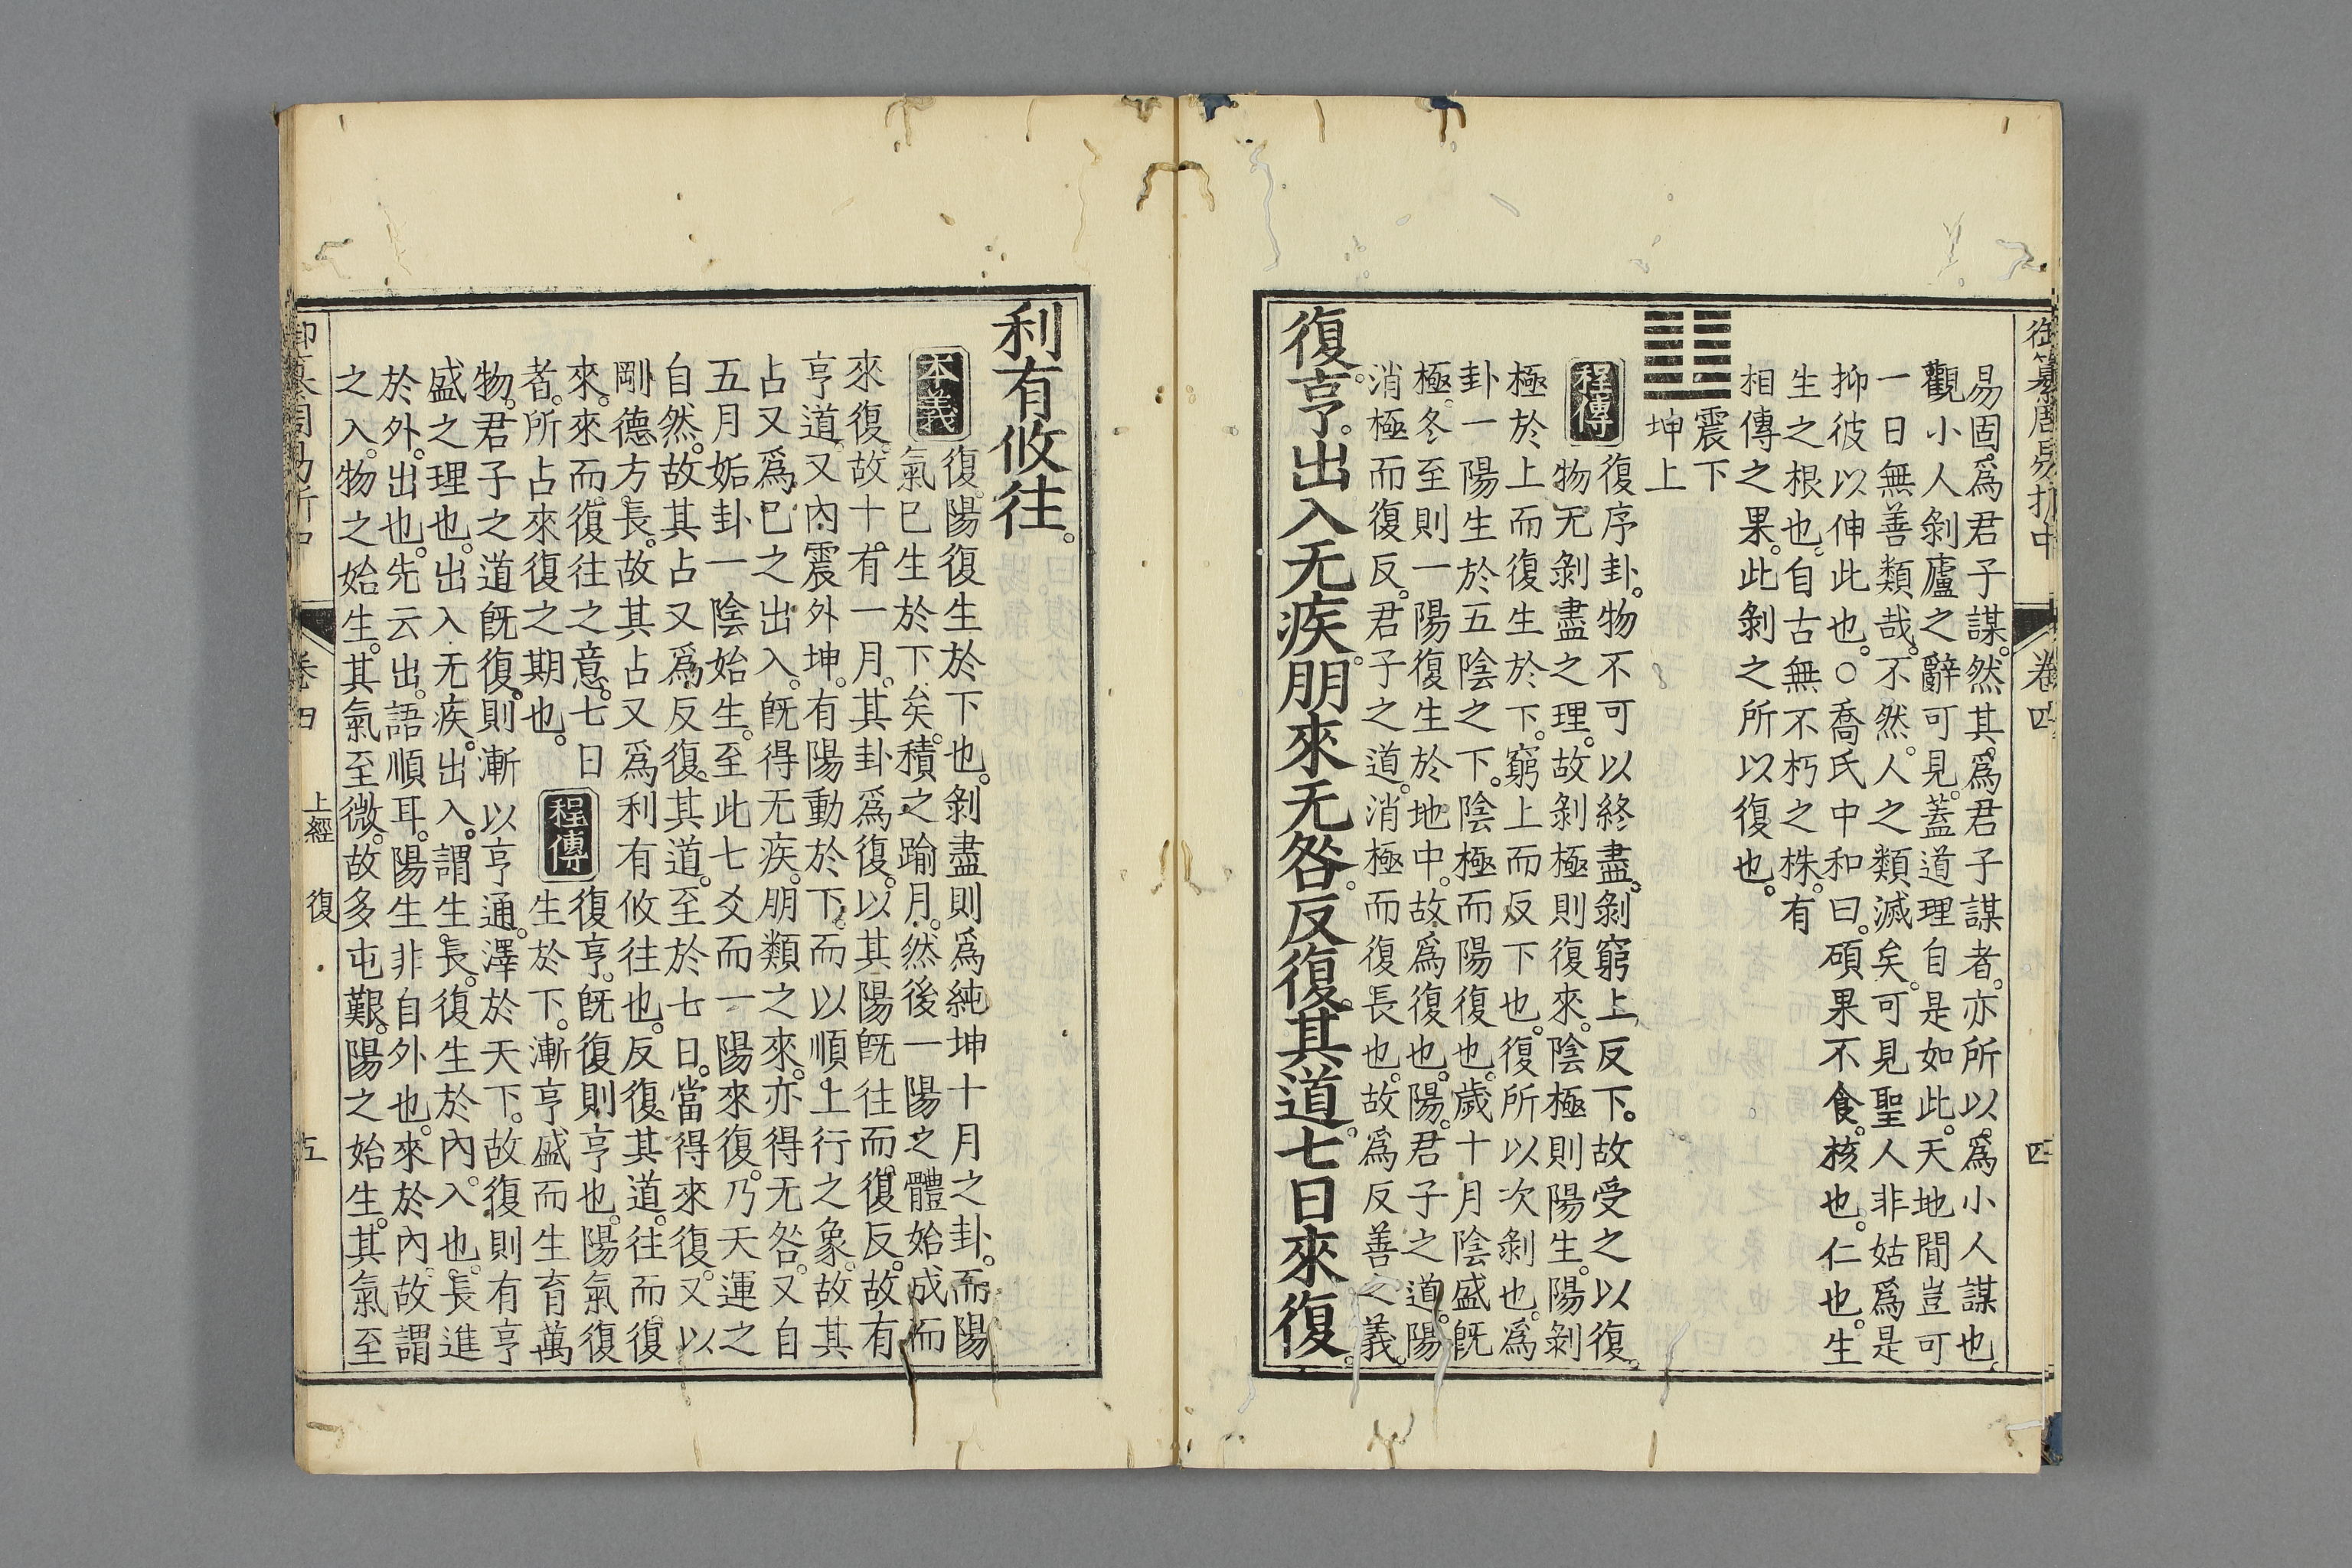 御纂周易折中 卷四 四
易固爲君子謀。然其爲君子謀者。亦所以爲小人謀也。
觀小人剝廬之辭可見。蓋道理自是如此。天地間豈可
一日無善類哉。不然。人之類滅矣。可見聖人非姑爲是
抑彼以伸此也。○喬氏中和曰。碩果不食。核也。仁也。生
生之根也。自古無不朽之株。有
相傳之果。此剝之所以復也。
震下
坤上
程傳
復序卦。物不可以終盡。剝窮上反下。故受之以復。
物无剝盡之理。故剝極則復來。陰極則陽生。陽剝
極於上而復生於下。窮上而反下也。復所以次剝也。爲
卦一陽生於五陰之下。陰極而陽復也。歲十月陰盛旣
極。冬至則一陽復生於地中。故爲復也。陽。君子之道。陽
消極而復反。君子之道。消極而復長也。故爲反善之義。
復亨。出入无疾。朋來无咎。反復其道。七日來復。
利有攸往。
本義
復。陽復生於下也。剝盡則爲純坤十月之卦。而陽
氣已生於下矣。積之踰月。然後一陽之體始成而
來復。故十有一月。其卦爲復。以其陽旣往而復反。故有
亨道。又內震外坤。有陽動於下。而以順上行之象。故其
占又爲己之出入。旣得无疾。朋類之來。亦得无咎。又自
五月姤卦一陰始生。至此七爻而一陽來復。乃天運之
自然。故其占又爲反復其道。至於七日。當得來復。又以
剛德方長。故其占又爲利有攸往也。反復其道。往而復
來。來而復往之意。七日
者。所占來復之期也。
程傳
復亨。旣復則亨也。陽氣復
生於下。漸亨盛而生育萬
物。君子之道旣復。則漸以亨通。澤於天下。故復則有亨
盛之理也。出入无疾。出入。謂生長。復生於內。入也。長進
於外。出也。先云出。語順耳。陽生非自外也。來於內。故謂
之入。物之始生。其氣至微。故多屯艱。陽之始生。其氣至
御纂周易折中 卷四 上經 復 五